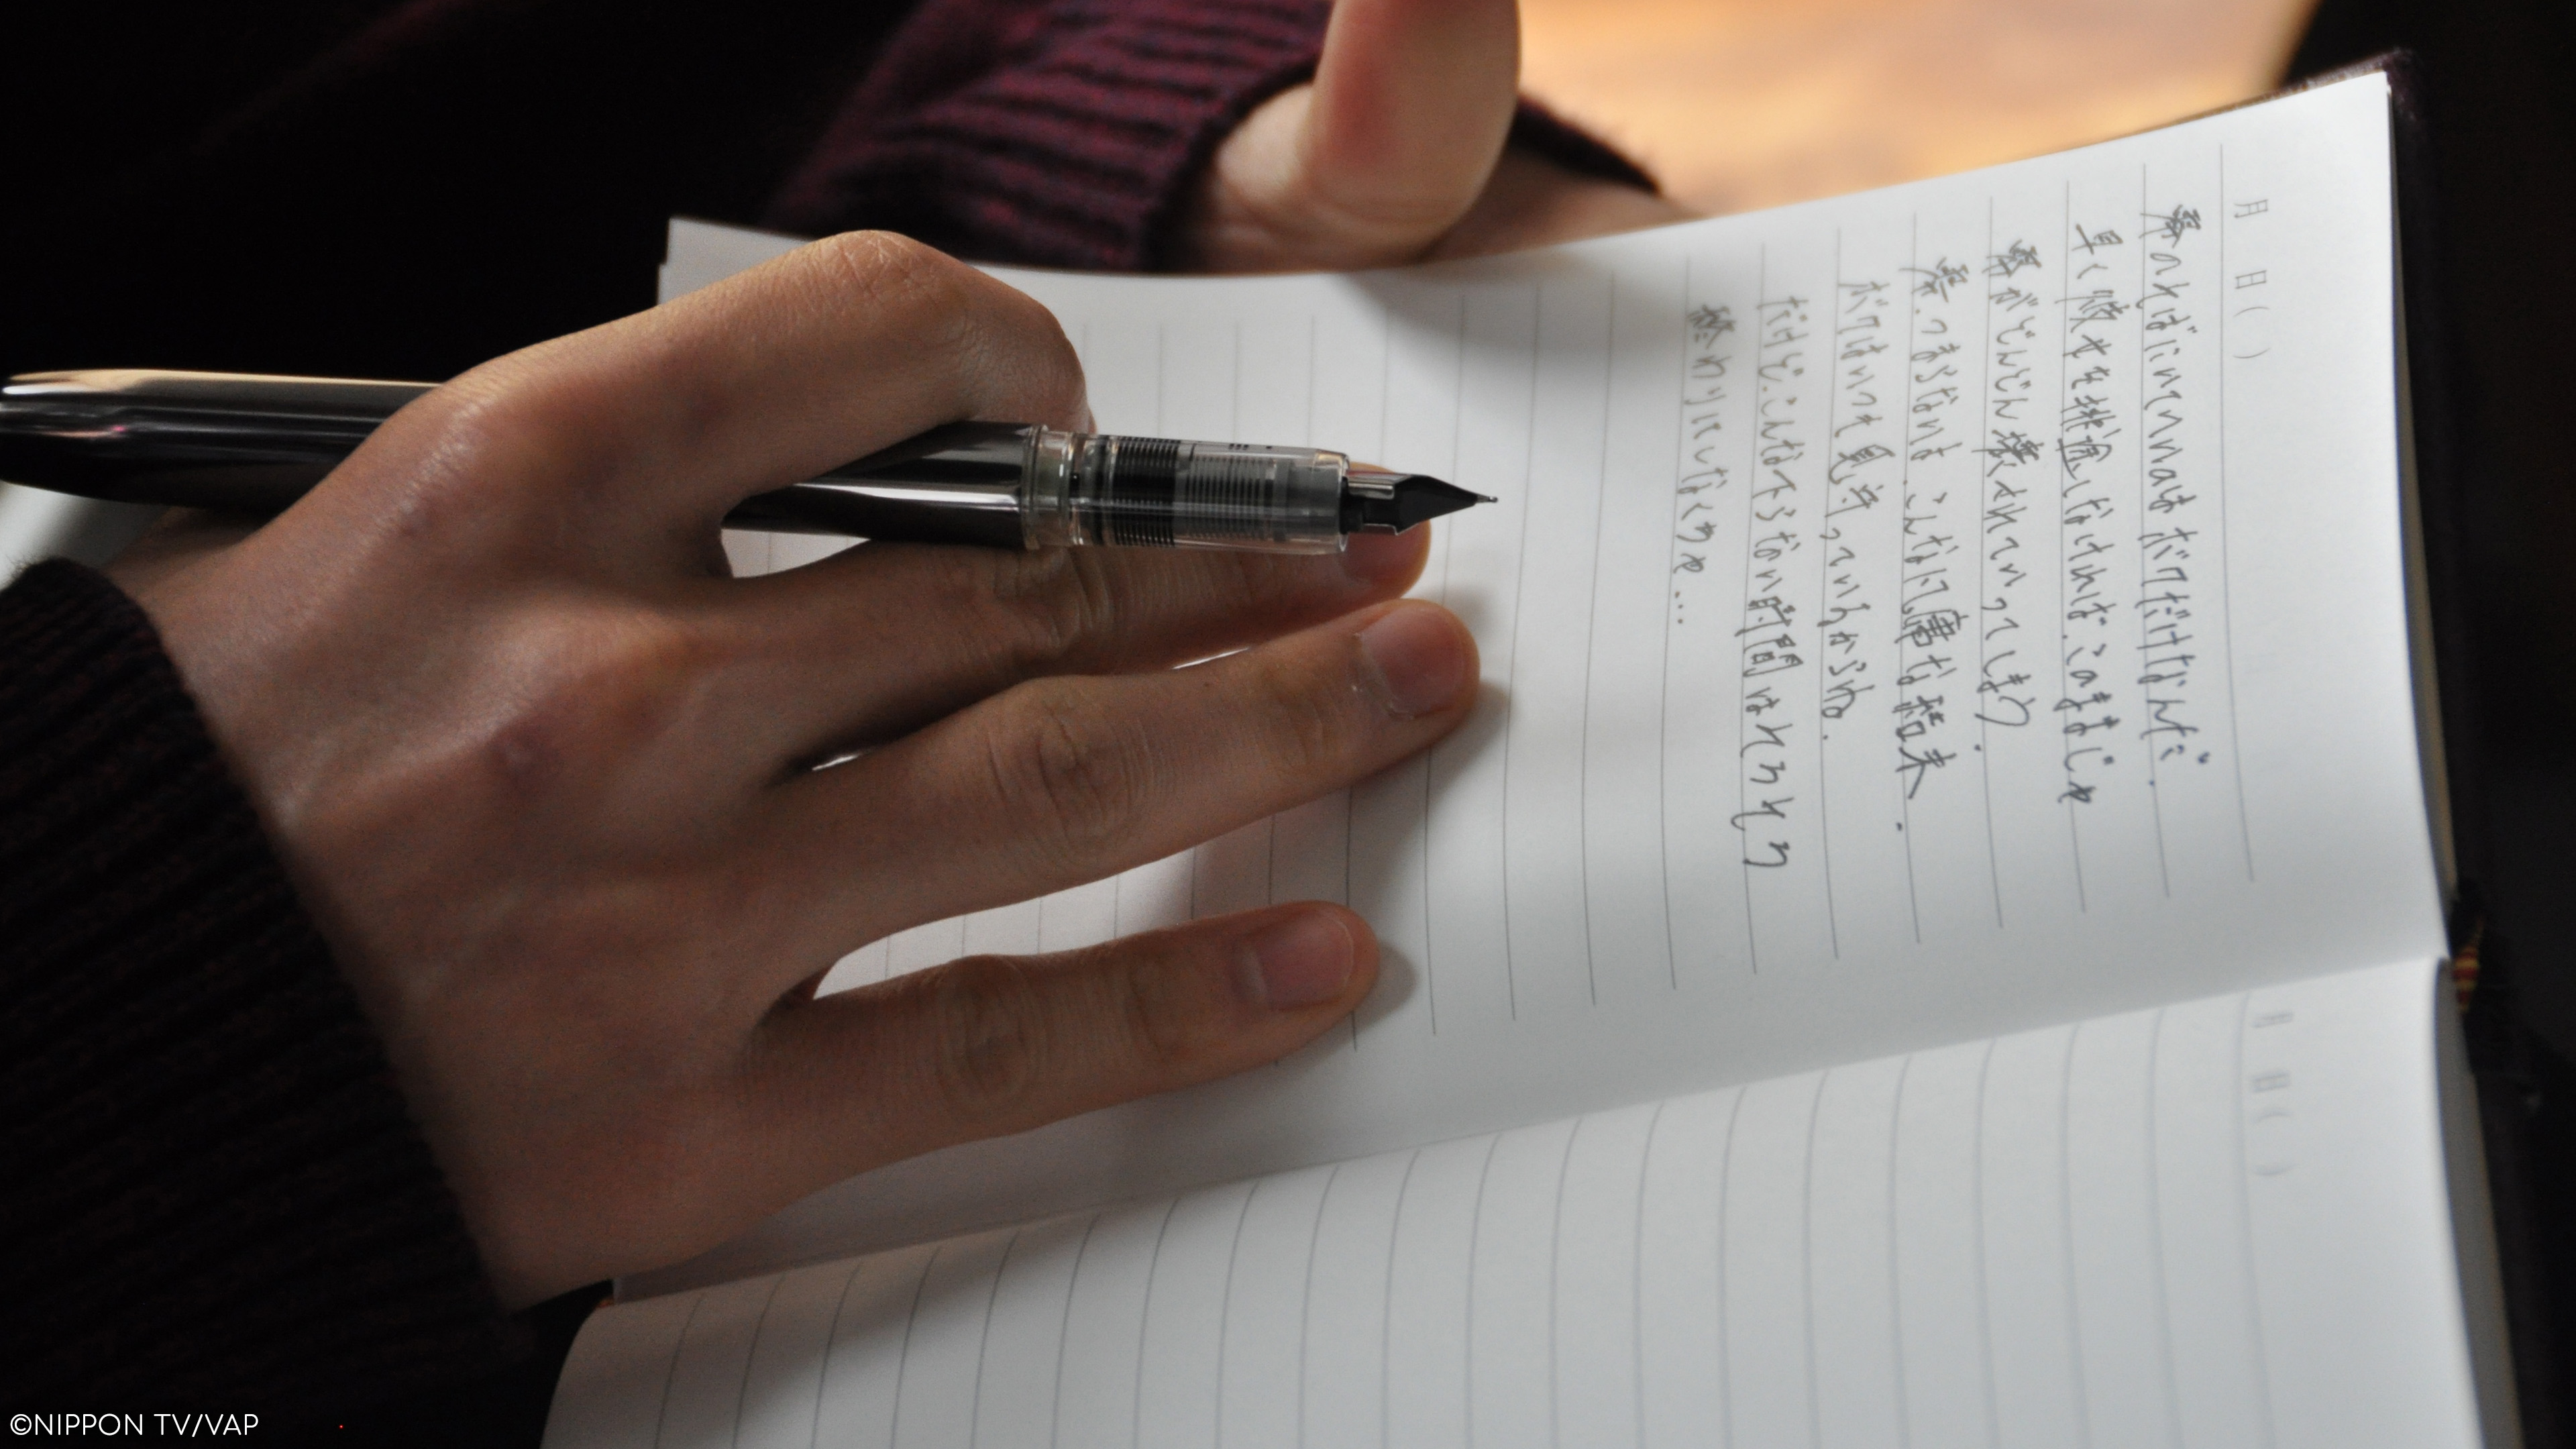 のそばにいていいのはボクだけなんだ。
早く彼女を排除しなければ、このままじゃ
がどんどん壊されていってしまう。
つまらないね、こんな 結末。
ボクはいつも見守っているからね。
だけど、こんな下らない時間はそろそろ
終わりにしなくちゃ…
月 日( )
月 日( )
©NIPPON TV/VAP